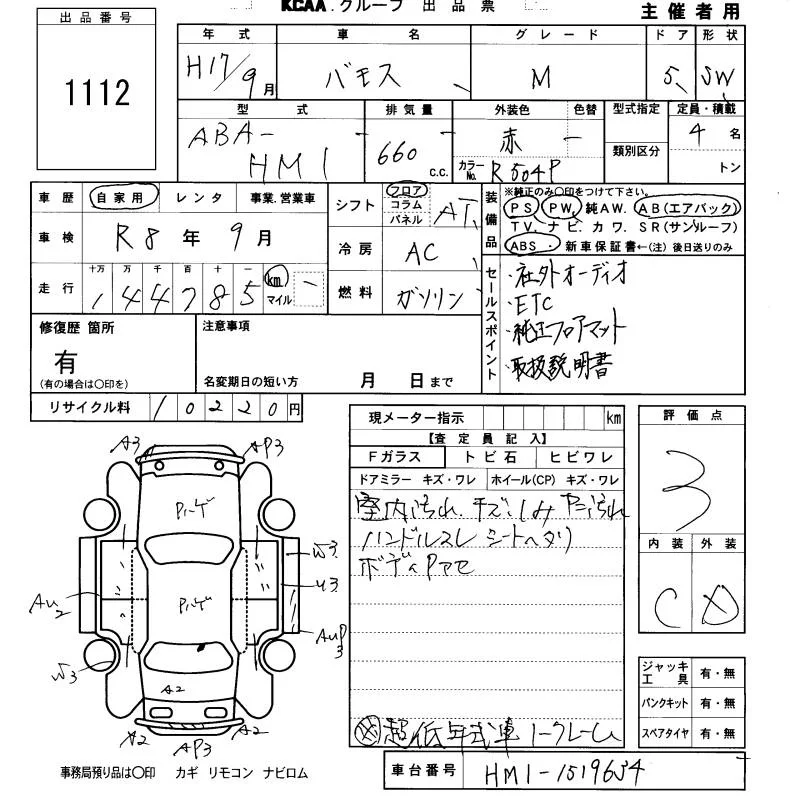 KCAA.グループ 出品票
主催者用
出品番号
1112
年式 車名 グレード ドア 形状
H17/9月 バモス M 5 SW
型式 排気量 外装色 色替 型式指定 定員・積載
ABA-HM1 660 c.c. 赤 - 4名
カラーNo. R504P 類別区分 トン
車歴 自家用 レンタ 事業.営業車
車検 R8年9月
走行 十万 万 千 百 十 一
144785 km マイル
シフト フロア コラム パネル AT
冷房 AC
燃料 ガソリン
装備品 ※純正のみ〇印をつけて下さい。
PS PW 純AW. AB(エアバック)
TV. ナビ. カワ. SR(サンルーフ)
ABS・ 新車保証書←(注)後日送りのみ
セールスポイント
・社外オーディオ
・ETC
・純正フロアマット
・取扱説明書
修復歴 箇所
有
(有の場合は〇印を)
注意事項
名変期日の短い方 月 日まで
リサイクル料 10220円
現メーター指示 km
【査定員記入】
Fガラス トビ石 ヒビワレ
ドアミラー キズ・ワレ ホイール(CP) キズ・ワレ
室内汚れ キズ しみ ヤニ汚れ
ハンドルスレ シートヘタリ
超低年式車ノークレーム
評価点
3
内装 外装
C D
ジャッキ工具 有・無
パンクキット 有・無
スペアタイヤ 有・無
車台番号 HM1-1519654
A3 AP3
Pハゲ
W3
U3
Pハゲ
AU2
AUP3
W3
A2
A2 AP3 A2
事務局預り品は〇印 カギ リモコン ナビロム